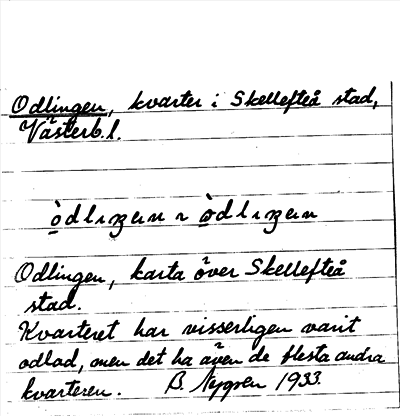 Odlingen, kvarter i Skellefteå stad,
Västerb. l.
Odlingen, karta över Skellefteå
stad.
Kvarteret har visserligen varit
odlad, men det ha även de flesta andra
kvarteren. B. Nygren 1933.